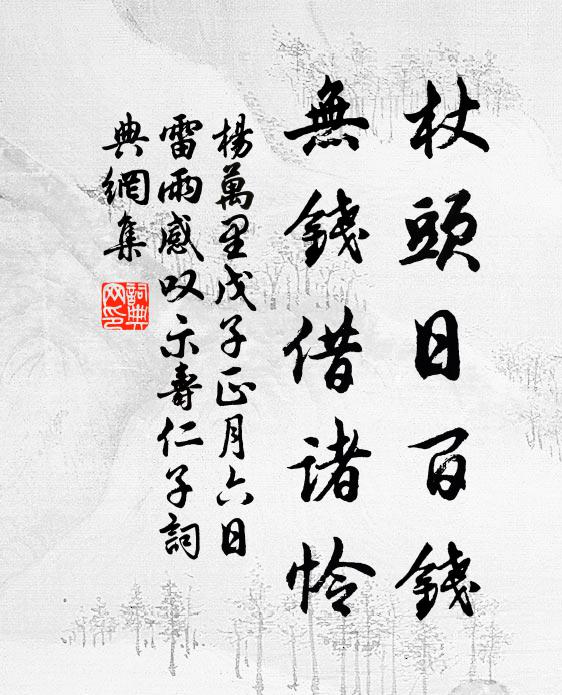 杖頭日百錢
無錢借諸怜
楊萬里戊子正月六日
雷雨感叹示壽仁子詞
典網集
詞典
网印